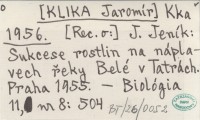 [KLIKA Jaromír] Kka
1956. [Rec. o:] J. Jeník:
Sukcese rostlin na nápla-
vech řeky Belé v Tatrách.
Praha 1955. — Biológia
11, nr 8: 504
BT/26/0052